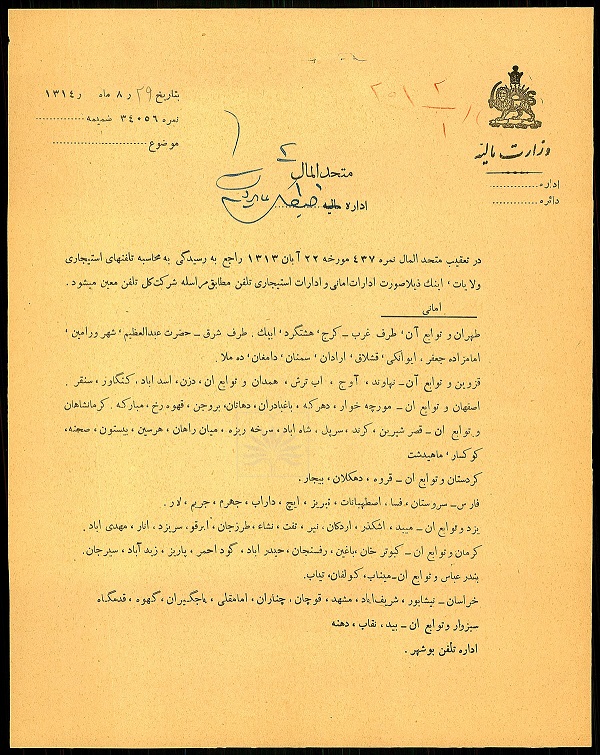 وزارت مالیه
اداره
دائره
بتاریخ ۲۹ ر ۸ ماه ر ۱۳۱۴
نمره ۳۴۰۵۶ ضمیمه
موضوع
۲
متحدالمال
اداره مالیه
در تعقیب متحد المال نمره ۴۳۷ مورخه ۲۲ آبان ۱۳۱۳ راجع به رسیدگی به محاسبه تلفنهای استیجاری
ولایات ، اینك ذیلا صورت ادارات امانی و ادارات استیجاری تلفن مطابق مراسله شرکت کل تلفن معین میشود .
امانی
طهران و توابع آن ، طرف غرب ــ کرج ، هشتگرد ، ابیك . طرف شرق ــ حضرت عبدالعظیم ، شهر ورامین ،
امامزاده جعفر ، ایوانکی ، قشلاق ، ارادان ، سمنان ، دامغان ، ده ملا .
قزوین و توابع آن ــ نهاوند ، آوج ، اب ترش ، همدان و توابع ان ، دزن ، اسد اباد ، کنگاور ، سنقر .
اصفهان و توابع ان ــ مورچه خوار ، دهرکه ، باغبادران ، دهاتان ، بروجن ، قهوه رخ ، مبارکه . کرمانشاهان
و توابع ان ــ قصر شیرین ، کرند ، سرپل ، شاه اباد ، سرخه ریزه ، میان راهان ، هرسین ، بیستون ، صحنه ،
کوکسار ، ماهیدشت
کردستان و توابع ان ــ قروه ، دهکلان ، بیجار .
فارس ــ سروستان ، فسا ، اصطهبانات ، تبریز ، ایج ، داراب ، جهرم ، جریم ، لار .
یزد و توابع ان ــ میبد ، اشکذر ، اردکان ، نیر ، تفت ، نشاء ، طرزجان ، ابرقو ، سریزد ، انار ، مهدی اباد .
کرمان و توابع ان ــ کبوتر خان ، باغین ، رفسنجان ، حیدر اباد ، گود احمر ، پاریز ، زید آباد ، سیرجان .
بندر عباس و توابع ان ــ میناب ، کولغان ، تیاب .
خراسان ــ نیشابور ، شریف اباد ، مشهد ، قوچان ، چناران ، امامقلی ، باجگیران ، کهوه ، قدمگاه
سبزوار و توابع ان ــ بید ، نقاب ، دهنه
اداره تلفن بوشهر .